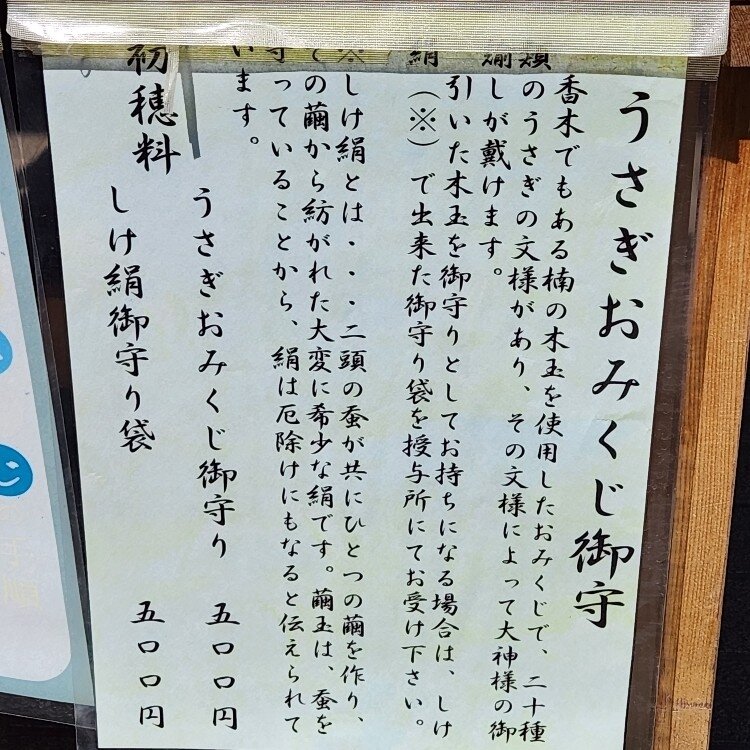 うさぎおみくじ御守
類香木でもある楠の木玉を使用したおみくじで、二十種
のうさぎの文様があり、その文様によって大神様の御
しが戴けます。
引いた木玉を御守りとしてお持ちになる場合は、しけ
絹(※)で出来た御守り袋を授与所にてお受け下さい。
※しけ絹とは・・・二頭の蚕が共にひとつの繭を作り、
の繭から紡がれた大変に希少な絹です。繭玉は、蚕を
守っていることから、絹は厄除けにもなると伝えられて
います。
初穂料
うさぎおみくじ御守り 五〇〇円
しけ絹御守り袋 五〇〇円